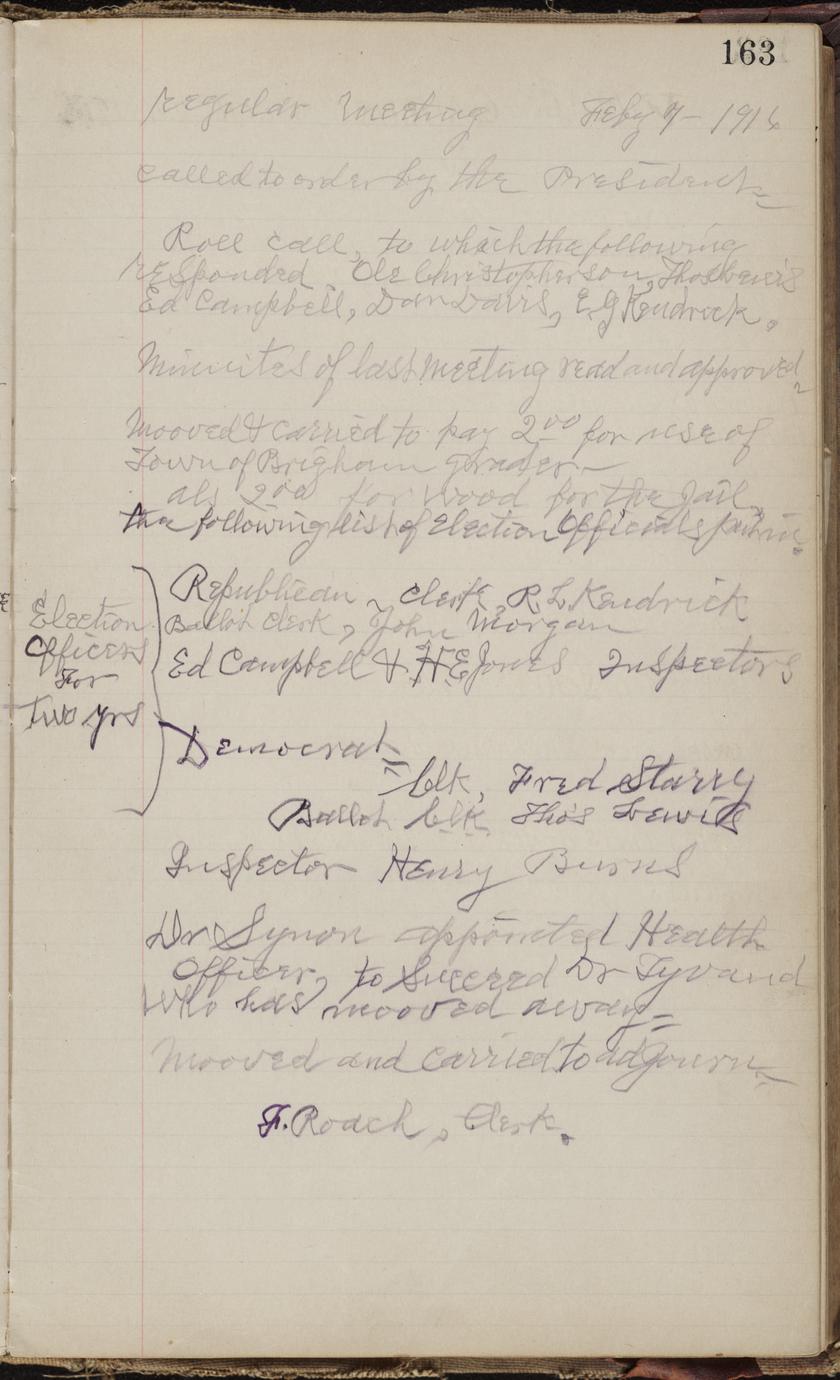 163
Regular Meeting Feby 7 - 1916
Called to order by the President
Roll call, to which the following
responded. Ole Christopherson, Thos Lewis
Ed Campbell, Dan Davis, E. G Kendrick.
Minuites of last Meeting read and approved
Mooved & carried to pay 2.00 for use of
Town of Brigham grader
als 2.00 for Wood for the Jail,
the following list of Election Officials put in.
Election
Officers
For
two yrs
Republican, Clerk, R. L Kendrick
Ballot Clerk, John Morgan
Ed Campbell & H E Jones Inspectors
Democrat
Clk, Fred Starry
Ballot Clk Thos Lewis
Inspector Henry Burns
Dr Synon appointed Health
Officer, to Succeed Dr Tyvand
Who has mooved away
Mooved and carried to adjourn
F. Roach, Clerk.